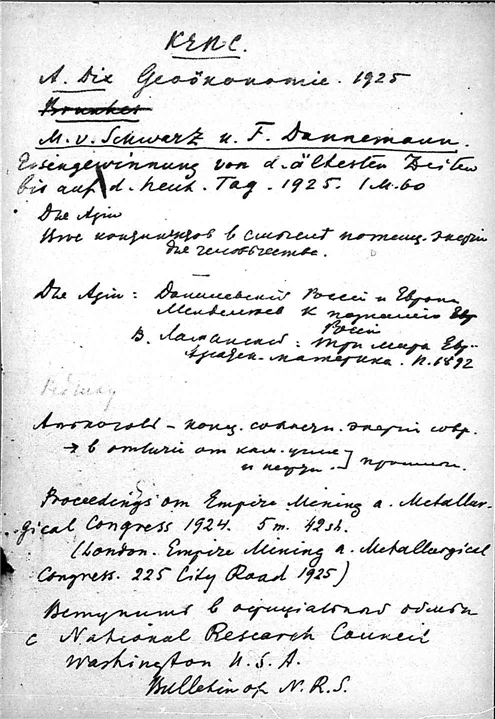 КЕПС.
A. Dix Geoökonomie. 1925
M. v. Schwarz u. F. Dannemann.
Eisengewinnung von d. ältesten Zeiten
bis auf d. heut. Tag. 1925. 1 M. 60
Для Азии
в смысле потенц. энергии
для человечества.
Для Азии: Данилевский Россия и Европа
Менделеев К познанию
России
В. Ламанский: Три мира
материка. П. 1892
конц. солнечн. энергии совр.
→ в отличии от кам. угля
и нефти.] прошлой.
Proceedings om Empire Mining a. Metallur-
gical Congress 1924. 5 m. 42 sh.
(London. Empire Mining a. Metallurgical
Congress. 225 City Road 1925)
Вступить в официальный обмен
с National Research Council
Washington U.S.A.
Bulletin of N.R.S.